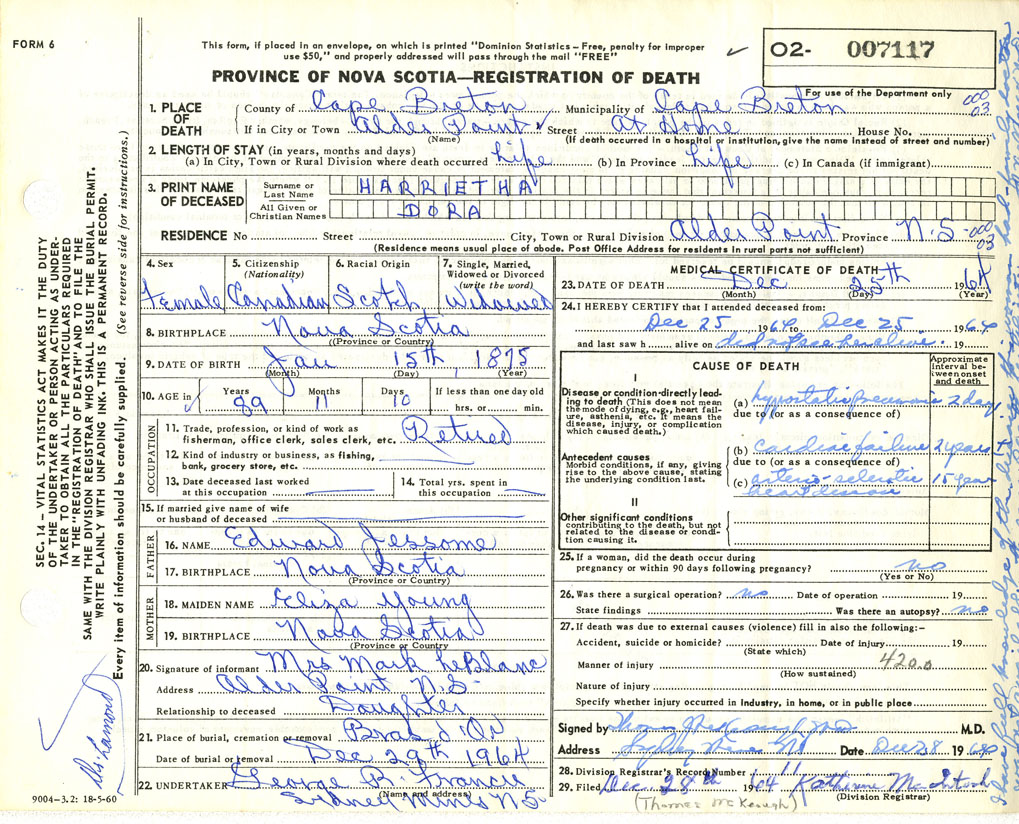 FORM 6
This form, if placed in an envelope, on which is printed "Dominion Statistics – Free, penalty for improper
use $50," and properly addressed will pass through the mail "FREE"
O2- 007117
For use of the Department only
PROVINCE OF NOVA SCOTIA—REGISTRATION OF DEATH
000
03
1. PLACE OF DEATH
County of Cape Breton Municipality of Cape Breton
If in City or Town Alder Point Street At Home House No.
(Name) (If death occurred in a hospital or institution, give the name instead of street and number)
2. LENGTH OF STAY (in years, months and days)
(a) In City, Town or Rural Division where death occurred life (b) In Province life (c) In Canada (if immigrant)
3. PRINT NAME OF DECEASED
Surname or Last Name HARRIETHA
All Given or Christian Names DORA
RESIDENCE No Street City, Town or Rural Division Alder Point Province N.S. 000
03
(Residence means usual place of abode. Post Office Address for residents in rural parts not sufficient)
4. Sex Female
5. Citizenship (Nationality) Canadian
6. Racial Origin Scotch
7. Single, Married, Widowed or Divorced (write the word) Widowed
8. BIRTHPLACE Nova Scotia
(Province or Country)
9. DATE OF BIRTH Jan 15th, 1875
(Month) (Day) (Year)
10. AGE in Years 89 Months 11 Days 10 If less than one day old hrs. or min.
OCCUPATION
11. Trade, profession, or kind of work as
fisherman, office clerk, sales clerk, etc. Retired
12. Kind of industry or business, as fishing,
bank, grocery store, etc.
13. Date deceased last worked
at this occupation
14. Total yrs. spent in
this occupation
15. If married give name of wife
or husband of deceased
FATHER
16. NAME Edward Jessome
17. BIRTHPLACE Nova Scotia
(Province or Country)
MOTHER
18. MAIDEN NAME Eliza Young
19. BIRTHPLACE Nova Scotia
(Province or Country)
20. Signature of informant Mrs Mark LeBlanc
Address Alder Point N.S.
Relationship to deceased Daughter
21. Place of burial, cremation or removal Bras d'Or
Date of burial or removal Dec 29th 1964
22. UNDERTAKER George B. Francis
(Name and address)
Sydney Mines N.S.
9004-3.2: 18-5-60
MEDICAL CERTIFICATE OF DEATH
23. DATE OF DEATH Dec 25th 1964
(Month) (Day) (Year)
24. I HEREBY CERTIFY that I attended deceased from:
Dec 25 1964 to Dec 25 1964
and last saw h alive on did not see her alive.
CAUSE OF DEATH
Approximate interval between onset and death
I
Disease or condition directly leading to death (This does not mean the mode of dying, e.g., heart failure, asthenia, etc. It means the disease, injury, or complication which caused death.)
(a) hypostatic Pneumonia 2 days
due to (or as a consequence of)
Antecedent causes
Morbid conditions, if any, giving rise to the above cause, stating the underlying condition last.
(b) cardiac failure 2 years +
due to (or as a consequence of)
(c) arterio-sclerotic 15 years
heart disease
II
Other significant conditions
contributing to the death, but not related to the disease or condition causing it.
25. If a woman, did the death occur during
pregnancy or within 90 days following pregnancy? no
(Yes or No)
26. Was there a surgical operation? no Date of operation 19
State findings Was there an autopsy? no
27. If death was due to external causes (violence) fill in also the following:–
Accident, suicide or homicide? Date of injury 19
(State which)
Manner of injury 420.0
(How sustained)
Nature of injury
Specify whether injury occurred in industry, in home, or in public place
Signed by M.D.
Address Sydney Mines NS Date Dec 28 1964
28. Division Registrar's Record Number 11
29. Filed Dec 28th 1964 Katherine McIntosh
(Division Registrar)
(Thomas McKeough)
SEC. 14 – VITAL STATISTICS ACT MAKES IT THE DUTY
OF THE UNDERTAKER OR PERSON ACTING AS UNDER-
TAKER TO OBTAIN ALL THE PARTICULARS REQUIRED
IN THE "REGISTRATION OF DEATH" AND TO FILE THE
SAME WITH THE DIVISION REGISTRAR WHO SHALL ISSUE THE BURIAL PERMIT.
WRITE PLAINLY WITH UNFADING INK. THIS IS A PERMANENT RECORD.
Every item of information should be carefully supplied. (See reverse side for instructions.)